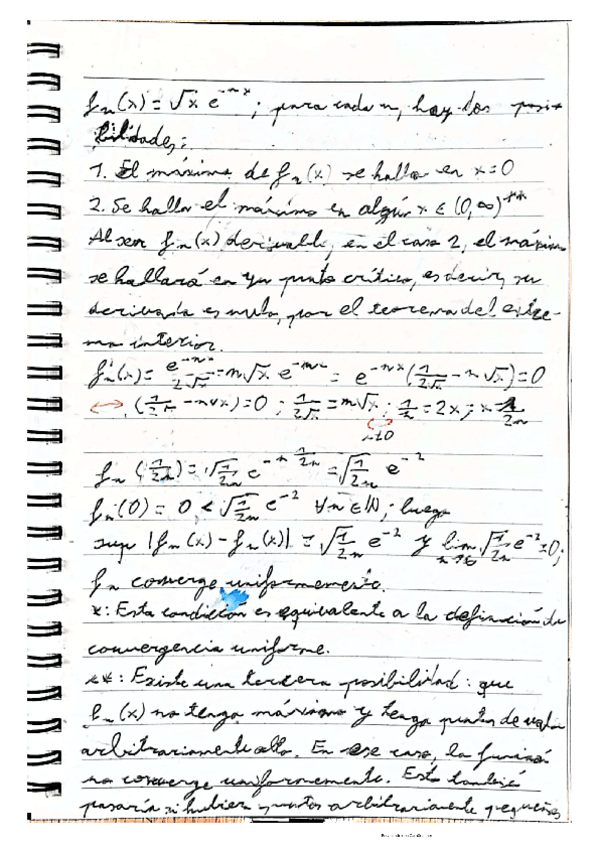 fₙ(x) = √x e^{-nx}; para cada n, hay dos posi-
bilidades:
1. El máximo de fₙ(x) se halla en x=0
2. Se halla el máximo en algún x ∈ (0,∞)**
Al ser fₙ(x) derivable, en el caso 2, el máximo
se hallará en un punto crítico, es decir, su
derivada es nula, por el teorema del extre-
mo interior.
fₙ'(x) = e^{-nx}/2√x - n√x e^{-nx} = e^{-nx}(1/2√x - n√x) = 0
↔ (1/2√x - n√x) = 0 ; 1/2√x = n√x ; 1/n = 2x ; x = 1/2n
n≠0
fₙ(1/2n) = √1/2n e^{-n 1/2n} = √1/2n e^{-2}
fₙ(0) = 0 < √1/2n e^{-2} ∀n ∈ ℕ; luego
sup |fₙ(x) - fₙ(x)| = √1/2n e^{-2} y lim √1/2n e^{-2} = 0;
fₙ converge uniformemente.
*: Esta condición es equivalente a la definición de
convergencia uniforme.
**: Existe una tercera posibilidad: que
fₙ(x) no tenga máximo y tenga puntos de valor
arbitrariamente alto. En ese caso, la función
no converge uniformemente. Esto también
pasaría si hubiera puntos arbitrariamente pequeños